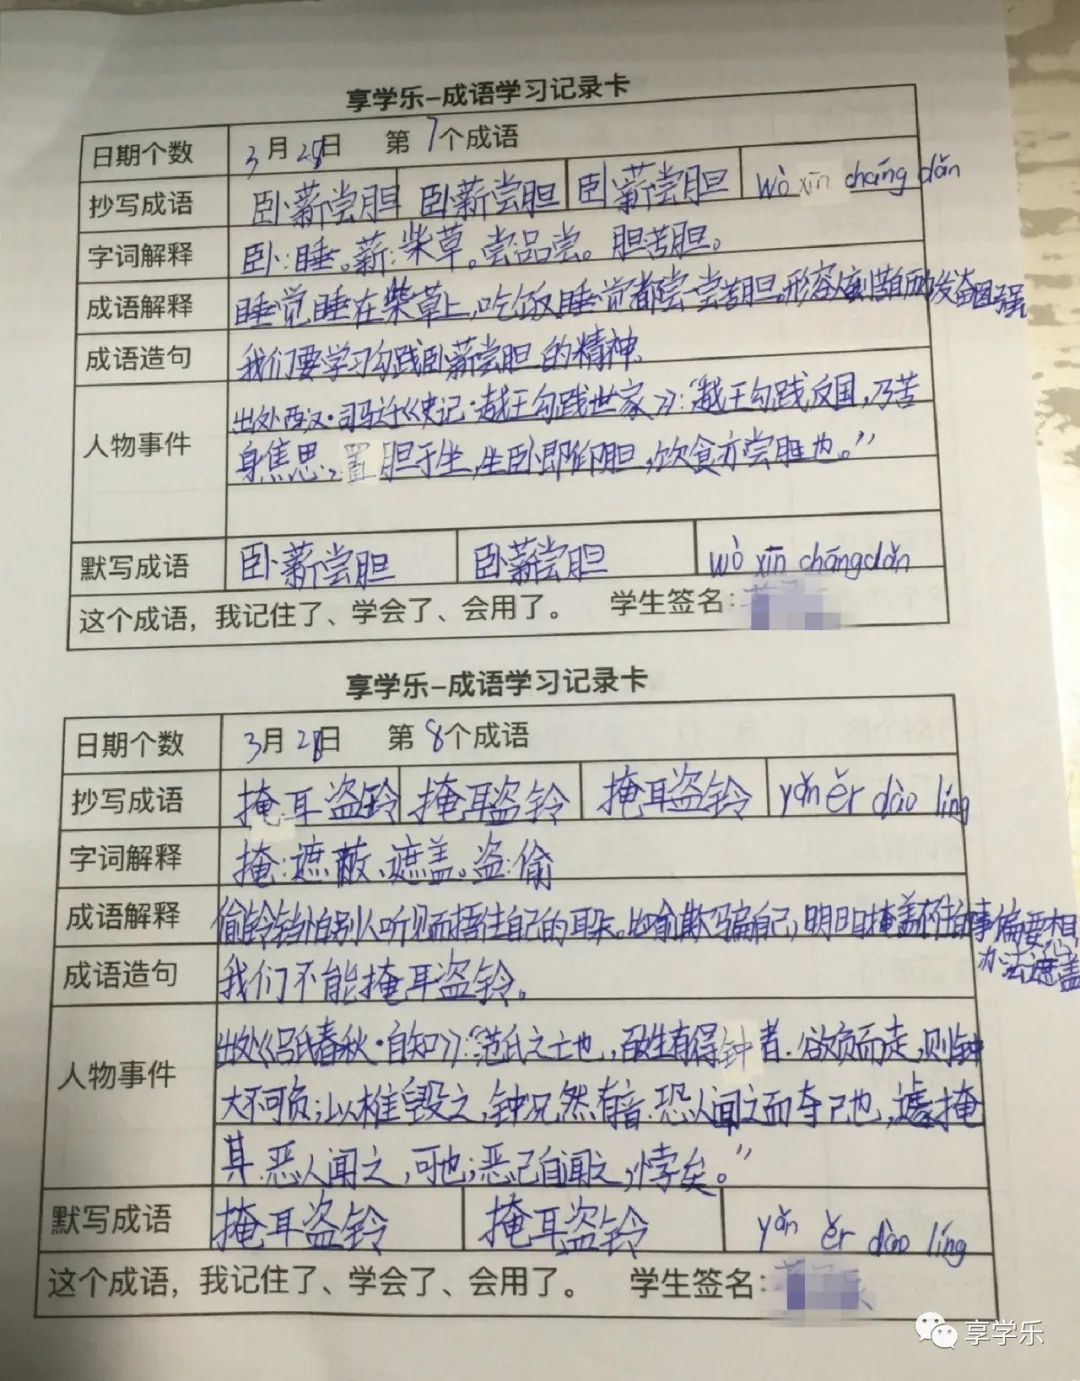 享学乐-成语学习记录卡
日期个数 3月28日 第7个成语
抄写成语 卧薪尝胆 卧薪尝胆 卧薪尝胆 wò xīn cháng dǎn
字词解释 卧:睡。薪:柴草。尝品尝。胆苦胆。
成语解释 睡觉睡在柴草上,吃饭睡觉都尝一尝苦胆。形容刻苦自励发奋图强
成语造句 我们要学习勾践卧薪尝胆的精神.
人物事件 出处西汉·司马迁《史记·越王勾践世家》:“越王勾践反国,乃苦
身焦思,置胆于坐,坐卧即仰胆,饮食亦尝胆也。”
默写成语 卧薪尝胆 卧薪尝胆 wò xīn chángdǎn
这个成语,我记住了、学会了、会用了。 学生签名:
享学乐-成语学习记录卡
日期个数 3月28日 第8个成语
抄写成语 掩耳盗铃 掩耳盗铃 掩耳盗铃 yǎn ěr dào líng
字词解释 掩:遮蔽、遮盖。盗:偷
成语解释 偷铃铛怕别人听见而捂住自己的耳朵。比喻欺骗自己,明明掩盖不住的事偏要想
办法遮盖
成语造句 我们不能掩耳盗铃。
人物事件 出处《吕氏春秋·自知》:“范氏之亡也,百姓有得钟者.欲负而走,则钟
大不可负;以椎毁之,钟况然有音.恐人闻之而夺己也,遽掩
其.恶人闻之,可也;恶己自闻之,悖矣。”
默写成语 掩耳盗铃 掩耳盗铃 yǎn ěr dào líng
这个成语,我记住了、学会了、会用了。 学生签名:
享学乐